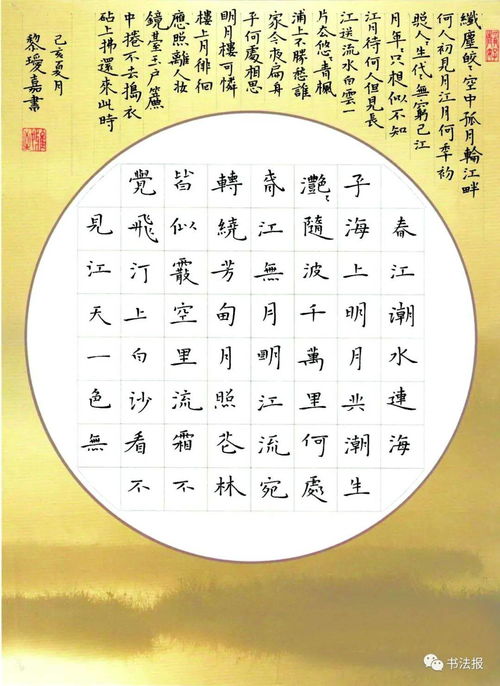 春江潮水連海
平海上明月共潮生
灧〻隨波千萬里何處
春江無月明江流宛
轉繞芳甸月照花林
皆似霰空里流霜不
覺飛汀上白沙看不
見江天一色無
纖塵皎〻空中孤月輪江畔
何人初見月江月何年初
照人〻生代〻無窮已江
月年〻只相似不知
江月待何人但見長
江送流水白雲一
片去悠〻青楓
浦上不勝愁誰
家今夜扁舟
子何處相思
明月樓可憐
樓上月徘徊
應照離人妝
鏡臺玉戶簾
中捲不去搗衣
砧上拂還來此時
己亥夏月
黎璦嘉書
书法报